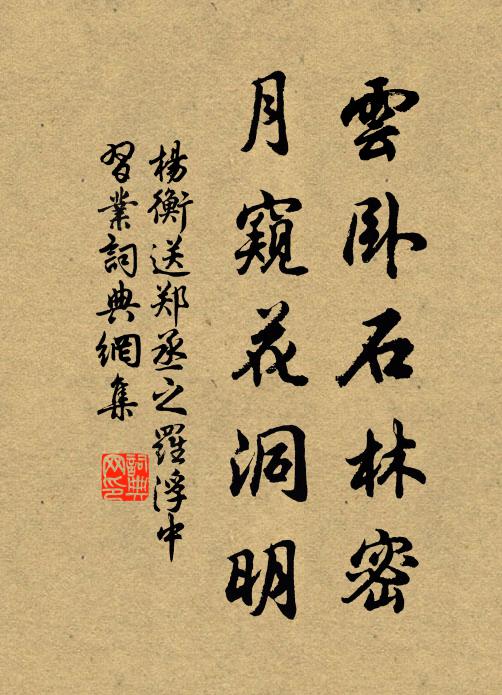 雲卧石林密
月窺花洞明
楊衡送郑丞之羅浮中
習業詞典網集
詞典
网印